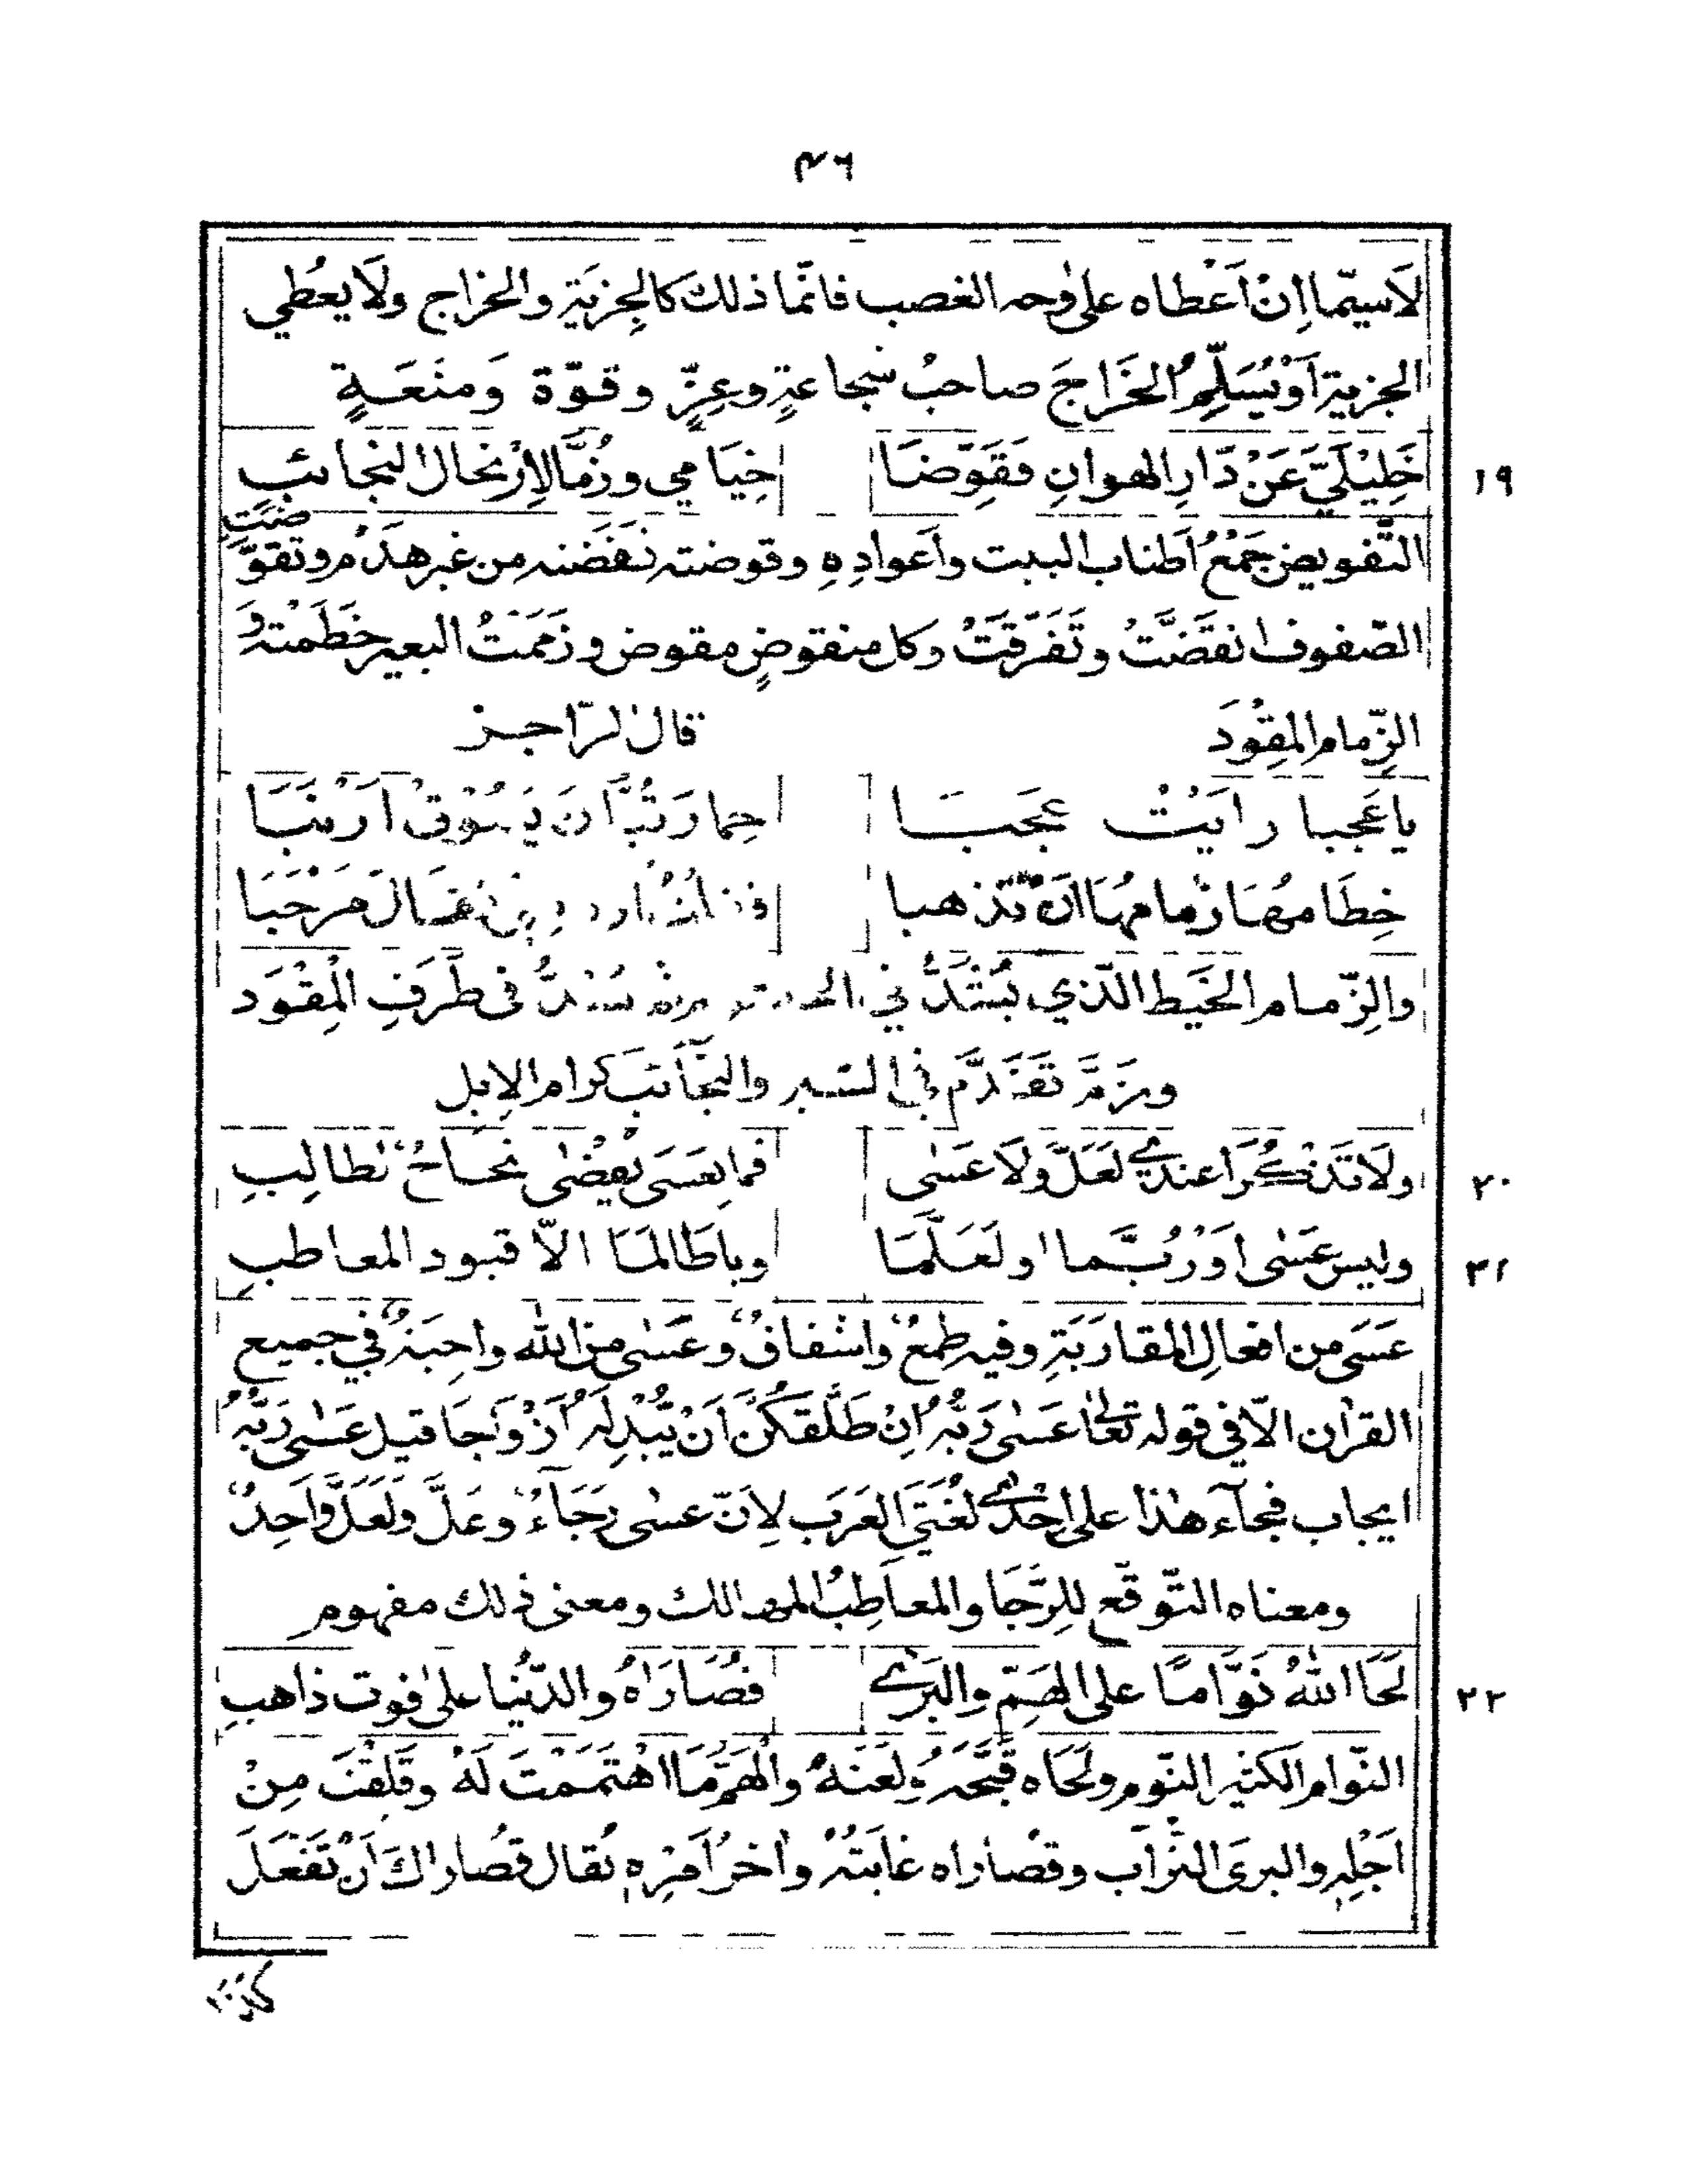 ٣٦
لَاسيّما اِنْ اَعْطاه على وجه الغصب فانّما ذلك كالجِزيَةِ والخراج ولَا يعُطي
الجزيةَ اَوْ يُسَلِّمِ الخَرَاجَ صاحبُ شجاعةٍ وعِزٍّ وقوّة وَمنَعَةٍ
١٩ خَلِيْلَيَّ عَنْ دَارِ الهوانِ فَقَوِّضَا خِيَامي وزُمَّا لاِرْتحال النجائبِ
التّقويض جَمْعُ اَطناب البيت واَعوادِهِ وقوضته نَقَضته من غير هَدْم وتقوّضَتِ
الصّفوف انقَضَّتْ وتَفَرّقَتْ وكل منقوضٍ مقوض وزَمَمْتُ البعير خَطَمْتهُ وَ
الزّمام المِقْوَد قال الرّاجز
يا عَجبا رايَتْ عجَبَا حِمار قَبّانَ يَسُوقُ اَرْنَبَا
خِطَامهَا زمامهَا اَنْ تَذهبا مَرْحَبَا
والزّمام الخَيط الّذي يُشَدُّ في يُشَدُّ فى طَرَفِ الْمِقْوَد
وزَمَّ تَقَدَّم في السّير والنّجَائب كرام الإبل
٢٠ ولَا تَذْكُرَا عندي لَعَلَّ ولَا عَسٰى فما بِعَسَى يُقضٰى نجَاحٌ لطالِبِ
٢١ وليس عَسٰى اَوْ رُبَّما او لَعَلّمَا ويا طَالمَا الّا قيود المعاطبِ
عَسَى من افعالِ المقارَبَةِ وفيه طمعٌ واشفاقٌ وعَسٰى من الله واجبَةٌ في جميع
القرآن الّا في قوله تعالى عَسٰى رَبُّهٗ اِنْ طَلَّقَكُنَّ اَنْ يُّبْدِلَهٗ اَزْوَاجًا قيل عَسٰى رَبُّهٗ
ايجاب فجآء هٰذا على اِحْدٰى لُغَتَيِ العَرَبِ لِاَنّ عسٰى رَجَآءٌ وعَلَّ ولَعَلَّ وَاحِدٌ
ومعناه التّوقّع لِلرَّجَا والمعاطِبُ المهالك ومعنى ذلك مفهوم
٢٢ لَحَا اللهُ نَوَّامًا على الهَمِّ والبَرٰى قُصَارَاهُ والدّنْيا على فوت ذاهبِ
النّوام الكثير النّوم ولَحَاه قَبَّحَهُ ولَعَنهُ والهَمّ مَا اهْتَمَمْتَ لَهٗ وقَلِقْتَ مِنْ
اَجْلِهٖ والبرَى التّراب وقصَاراه غايَتُهٗ واٰخرُ اَمْرِهٖ يُقال قُصَاراكَ اَنْ تَفْعَلَ
كذا